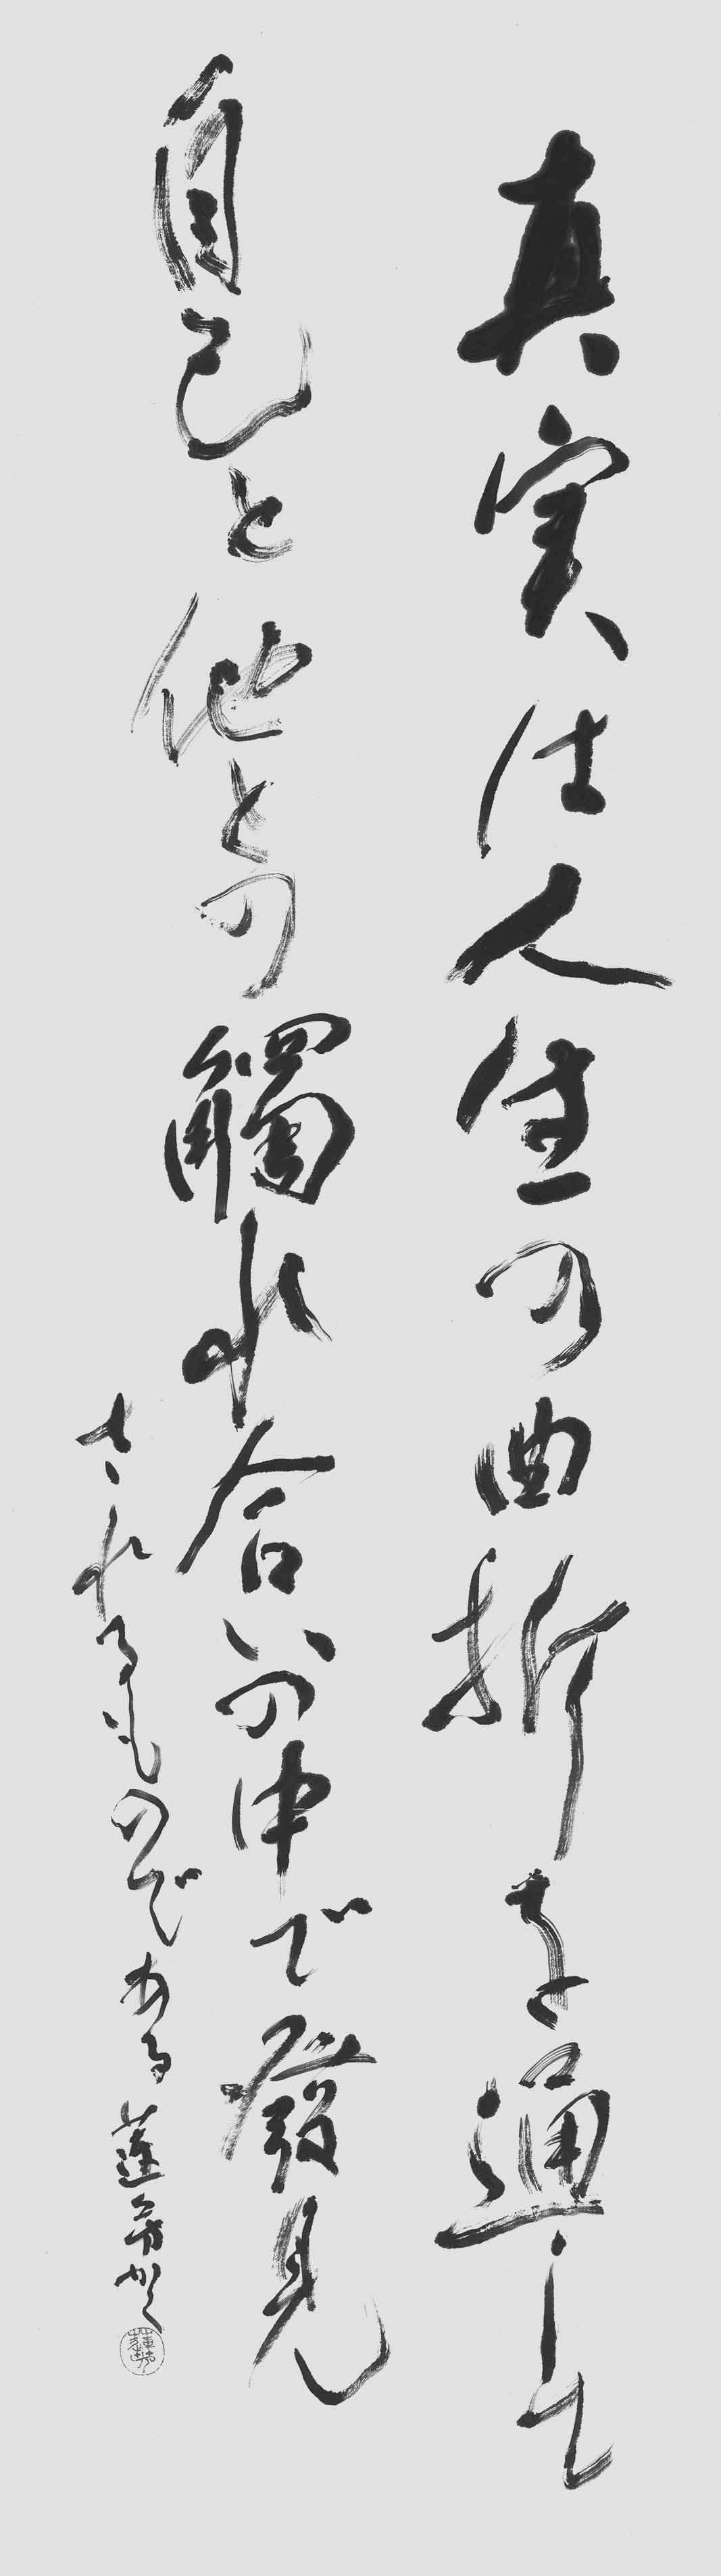 真実は人生の曲折を通して
自己と他との觸れ合の中で發見
されるものである 蓮